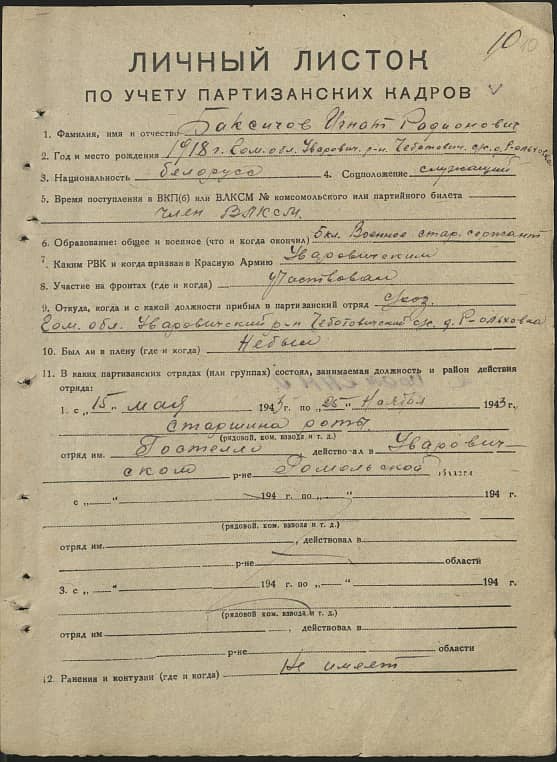 10
10
ЛИЧНЫЙ ЛИСТОК
ПО УЧЕТУ ПАРТИЗАНСКИХ КАДРОВ
1. Фамилия, имя и отчество Баксичов Игнат Радионович
2. Год и место рождения 1918 г. Гом. обл. Уварович. р-н Чеботович. с/с д. Р-ольховка
3. Национальность белорус 4. Соцположение служащий
5. Время поступления в ВКП(б) или ВЛКСМ № комсомольского или партийного билета
Член ВЛКСМ
6. Образование: общее и военное (что и когда окончил) 5 кл. Военное стар. сержант
7. Каким РВК и когда призван в Красную Армию Уваровическим
8. Участие на фронтах (где и когда) участвовал
9. Откуда, когда и с какой должности прибыл в партизанский отряд
Гом. обл. Уваровичский р-н Чеботовичский с/с. д. Р-ольховка
10. Был ли в плену (где и когда) Не был
11. В каких партизанских отрядах (или группах) состоял, занимаемая должность и район действия
отряда:
1. с „15“ мая 1943 г. по „25“ Ноября 1943 г.
старшина роты.
(рядовой, ком. взвода и т. д.)
отряд им. Гостелло действовал в Уварович-
ском р-не Гомельской области
с „ “ 194 г. по „ “ 194 г.
(рядовой, ком. взвода и т. д.)
отряд им. , действовал в
р-не области
3. с „ “ 194 г. по „ “ 194 г.
(рядовой, ком. взвода и т. д.)
отряд им. , действовал в
р-не области
12. Ранения и контузии (где и когда) Не имеет